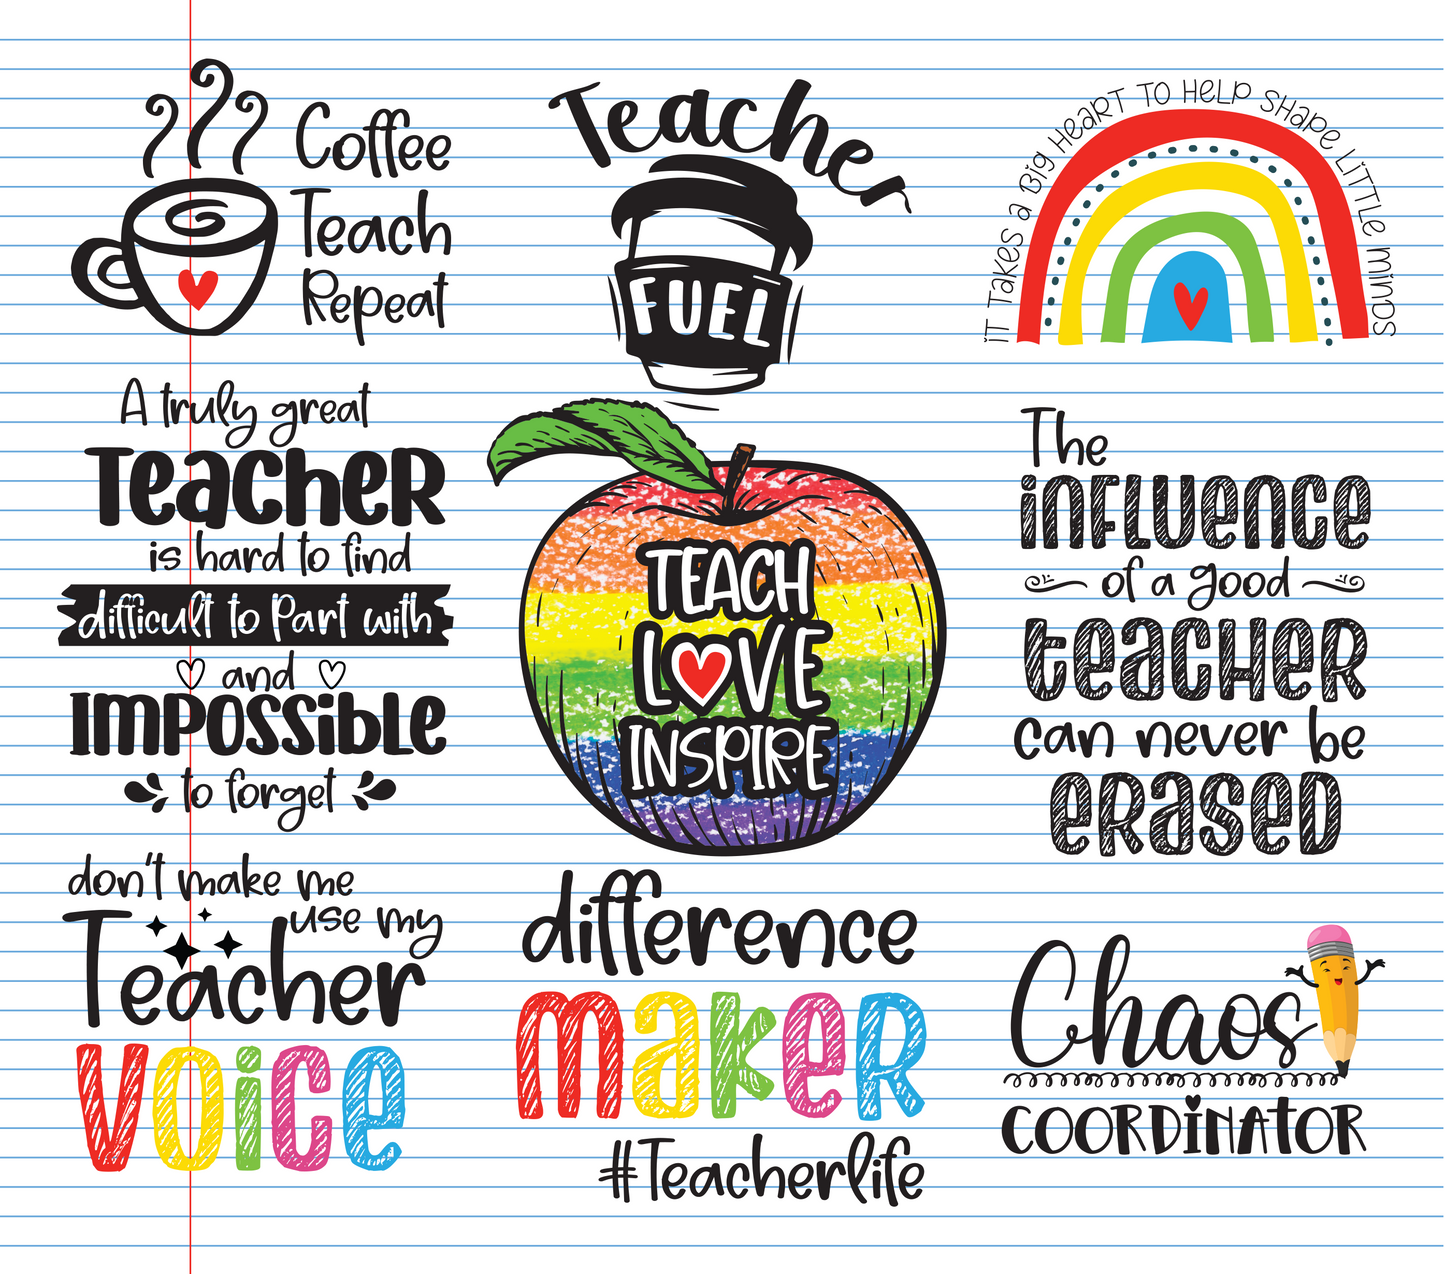 Coffee
Teach
Repeat
Teacher
FUEL
iT TaKes a BiG HeaRT TO HeLP SHaPe LiTTLe MiNDS
A truly great
TeacheR
is hard to find
difficult to Part with
and
IMPOSSibLe
to forget
TEACH
LOVE
INSPIRE
The
iNFLUeNCe
of a good
teacHeR
can never be
eRaseD
don't make me
use my
Teacher
voice
difference
makeR
#Teacherlife
Chaos
COORDiNAtOR